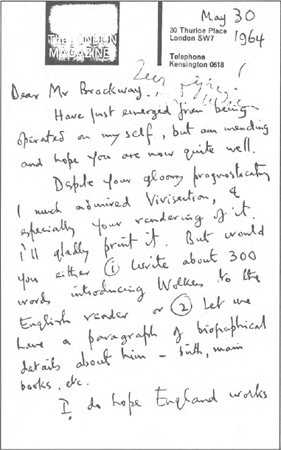 THE LONDON
MAGAZINE
30 Thurloe Place
London SW7
Telephone
Kensington 0618
May 30
1964
Dear Mr Brockway,
Have just emerged from being
operated on myself, but am mending
and hope you are now quite well.
Despite your gloomy prognostications
I much admired Vivisection, &
especially your rendering of it.
I'll gladly print it. But would
you either ① write about 300
words introducing Wolkers to the
English reader or ② let me
have a paragraph of biographical
details about him – birth, main
books, etc.
I do hope England works